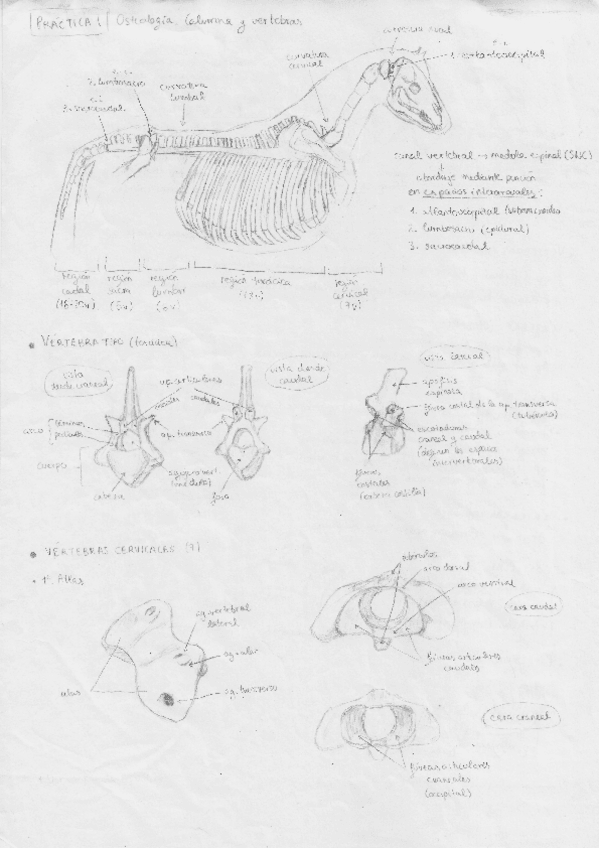 PRÁCTICA 1 Osteología. Columna y vértebras
curvatura nucal
1. atlantooccipital
curvatura cervical
2. lumbosacro
curvatura lumbar
3. sacrocaudal
canal vertebral → médula espinal (SNC)
abordaje mediante punción
en espacios interarcuales:
1. atlantooccipital
2. lumbosacro (epidural)
3. sacrocaudal
región caudal (18-20v)
región sacra (5v)
región lumbar (6v)
región torácica
región cervical (7v)
• VÉRTEBRA TIPO (torácica)
vista desde craneal
ap. articulares
craneales caudales
vista desde caudal
vista lateral
apófisis espinosa
arco
láminas
pedículos
ap. transversa
fóvea costal de la ap. transversa
escotaduras craneal y caudal
(dejan los espacios intervertebrales)
cuerpo
cabeza
(médula)
fosa
fóveas costales
• VÉRTEBRAS CERVICALES (7)
· 1ª. Atlas
ag. vertebral lateral
ag. alar
ag. transverso
alas
arco dorsal
arco ventral
cara caudal
fóveas articulares caudales
cara craneal
fóveas articulares craneales
(occipital)